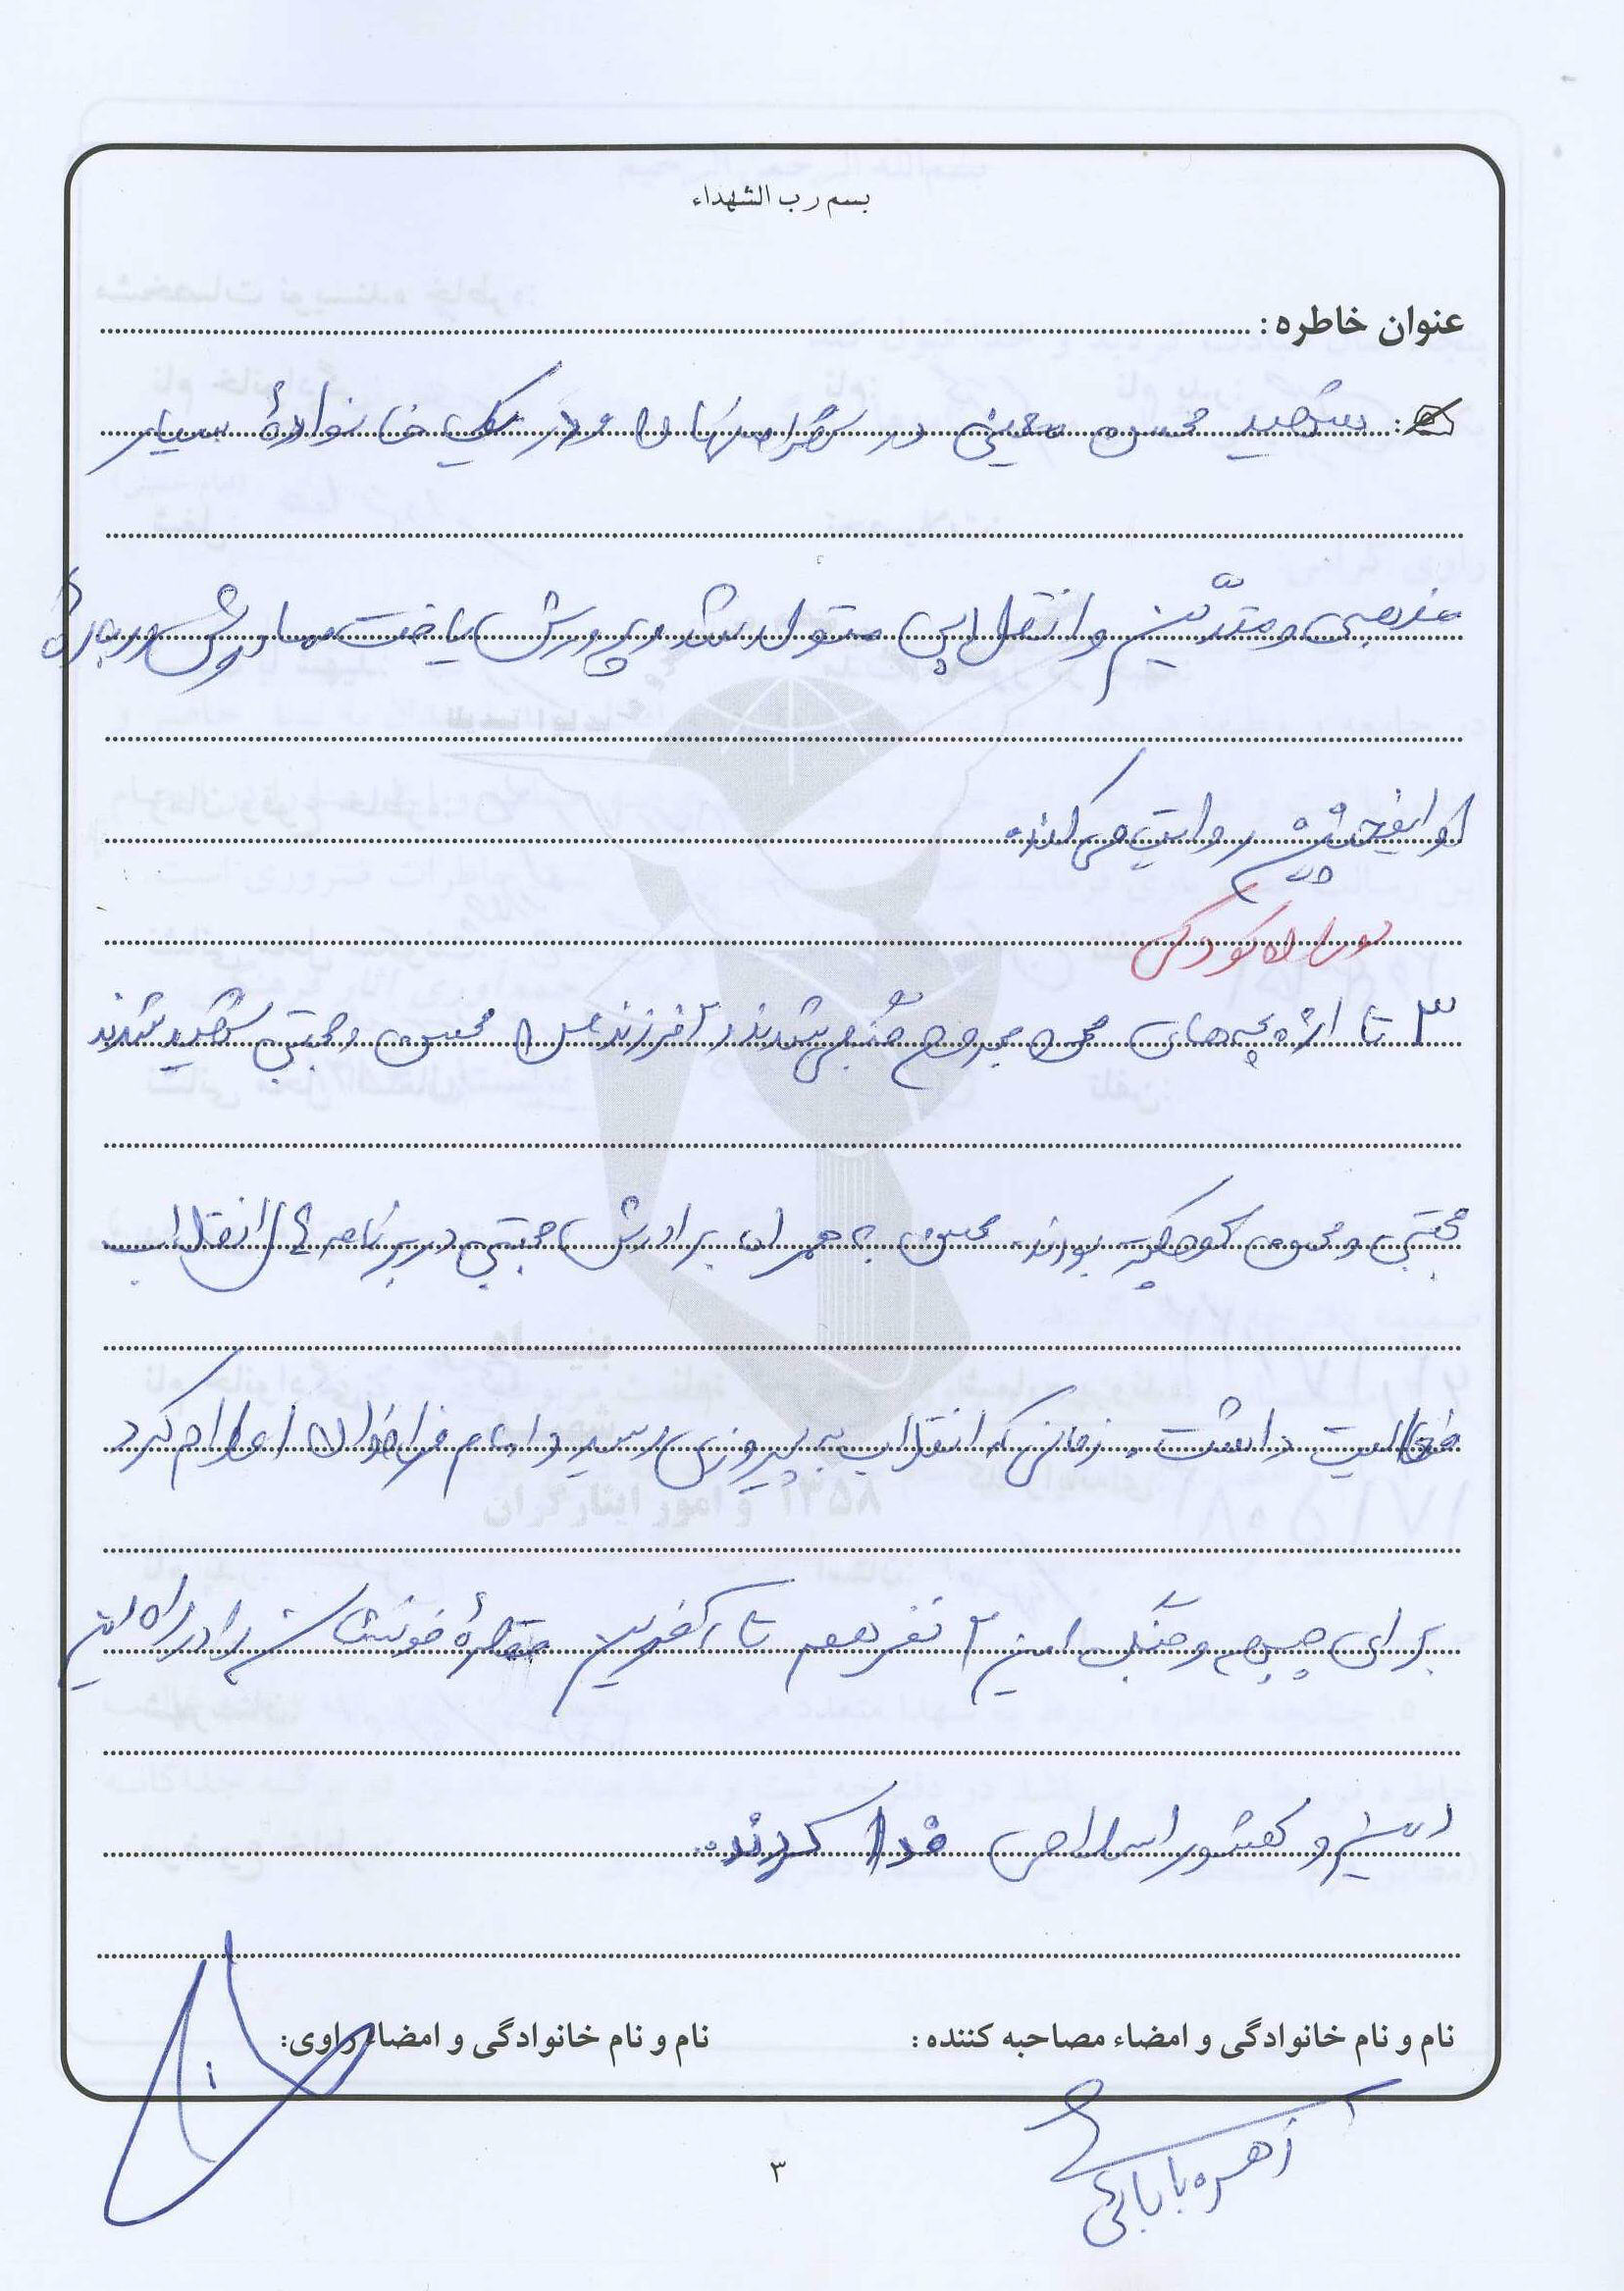 بسم رب الشهداء
عنوان خاطره :
شهید محسن معینی در شهر اصفهان و در یک خانوادهٔ بسیار
مذهبی و متدّین و انقلابی متولد شد و پرورش یافت مادرش دربارهٔ
او اینچنین روایت می‌کند.
دوران کودکی
۳ تا از بچه‌های محسن مجروح شدند ۲ فرزند من محسن و مجتبی شهید شدند
مجتبی و محسن کوچک بودند. محسن به همراه برادرش مجتبی در برنامه‌های انقلاب
فعالیت داشت. زمانی که انقلاب به پیروزی رسید و امام فراخوان اعلام کرد
برای جبهه و جنگ این ۲ نفر هم تا آخرین قطرهٔ خونشان را در راه این
دین و کشور اسلامی فدا کردند.
نام و نام خانوادگی و امضاء مصاحبه کننده :
نام و نام خانوادگی و امضاء راوی:
زهره بابائی
۳